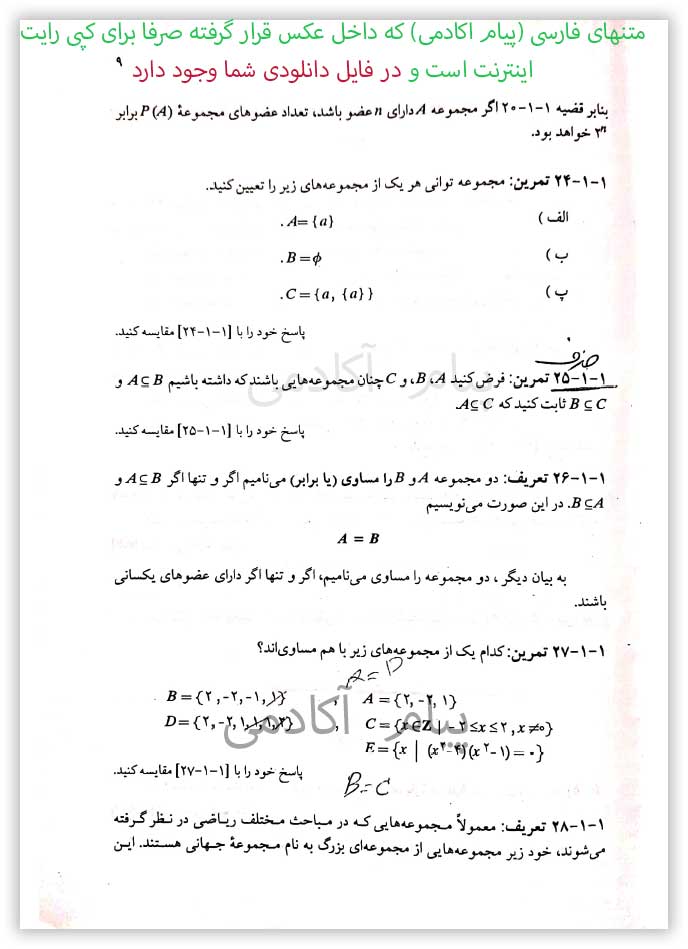 متنهای فارسی (پیام اکادمی) که داخل عکس قرار گرفته صرفا برای کپی رایت
اینترنت است و در فایل دانلودی شما وجود دارد
۹
بنابر قضیه ۱-۱-۲۰ اگر مجموعه A دارای n عضو باشد، تعداد عضوهای مجموعهٔ P(A) برابر
۲ⁿ خواهد بود.
۱-۱-۲۴ تمرین: مجموعه توانی هر یک از مجموعه‌های زیر را تعیین کنید.
الف) A={a}.
ب) B=ϕ.
پ) C={a, {a}}.
پاسخ خود را با [۱-۱-۲۴] مقایسه کنید.
حذف
۱-۱-۲۵ تمرین: فرض کنید A، B، و C چنان مجموعه‌هایی باشند که داشته باشیم A⊆B و
B⊆C ثابت کنید که A⊆C.
پیام آکادمی
پاسخ خود را با [۱-۱-۲۵] مقایسه کنید.
۱-۱-۲۶ تعریف: دو مجموعه A و B را مساوی (یا برابر) می‌نامیم اگر و تنها اگر A⊆B و
B⊆A. در این صورت می‌نویسیم
A = B
به بیان دیگر، دو مجموعه را مساوی می‌نامیم، اگر و تنها اگر دارای عضوهای یکسانی
باشند.
۱-۱-۲۷ تمرین: کدام یک از مجموعه‌های زیر با هم مساوی‌اند؟
A=D
B={۲,-۲,-۱,۱} , A={۲,-۲,۱}
D={۲,-۲,۱,۱,۱,۲} , C={x∈Z | -۲≤x≤۲, x≠۰}
پیام آکادمی
E={x | (x²-۴)(x²-۱)=۰}
پاسخ خود را با [۱-۱-۲۷] مقایسه کنید.
B=C
۱-۱-۲۸ تعریف: معمولاً مجموعه‌هایی که در مباحث مختلف ریاضی در نظر گرفته
می‌شوند، خود زیر مجموعه‌هایی از مجموعه‌ای بزرگ به نام مجموعهٔ جهانی هستند. این